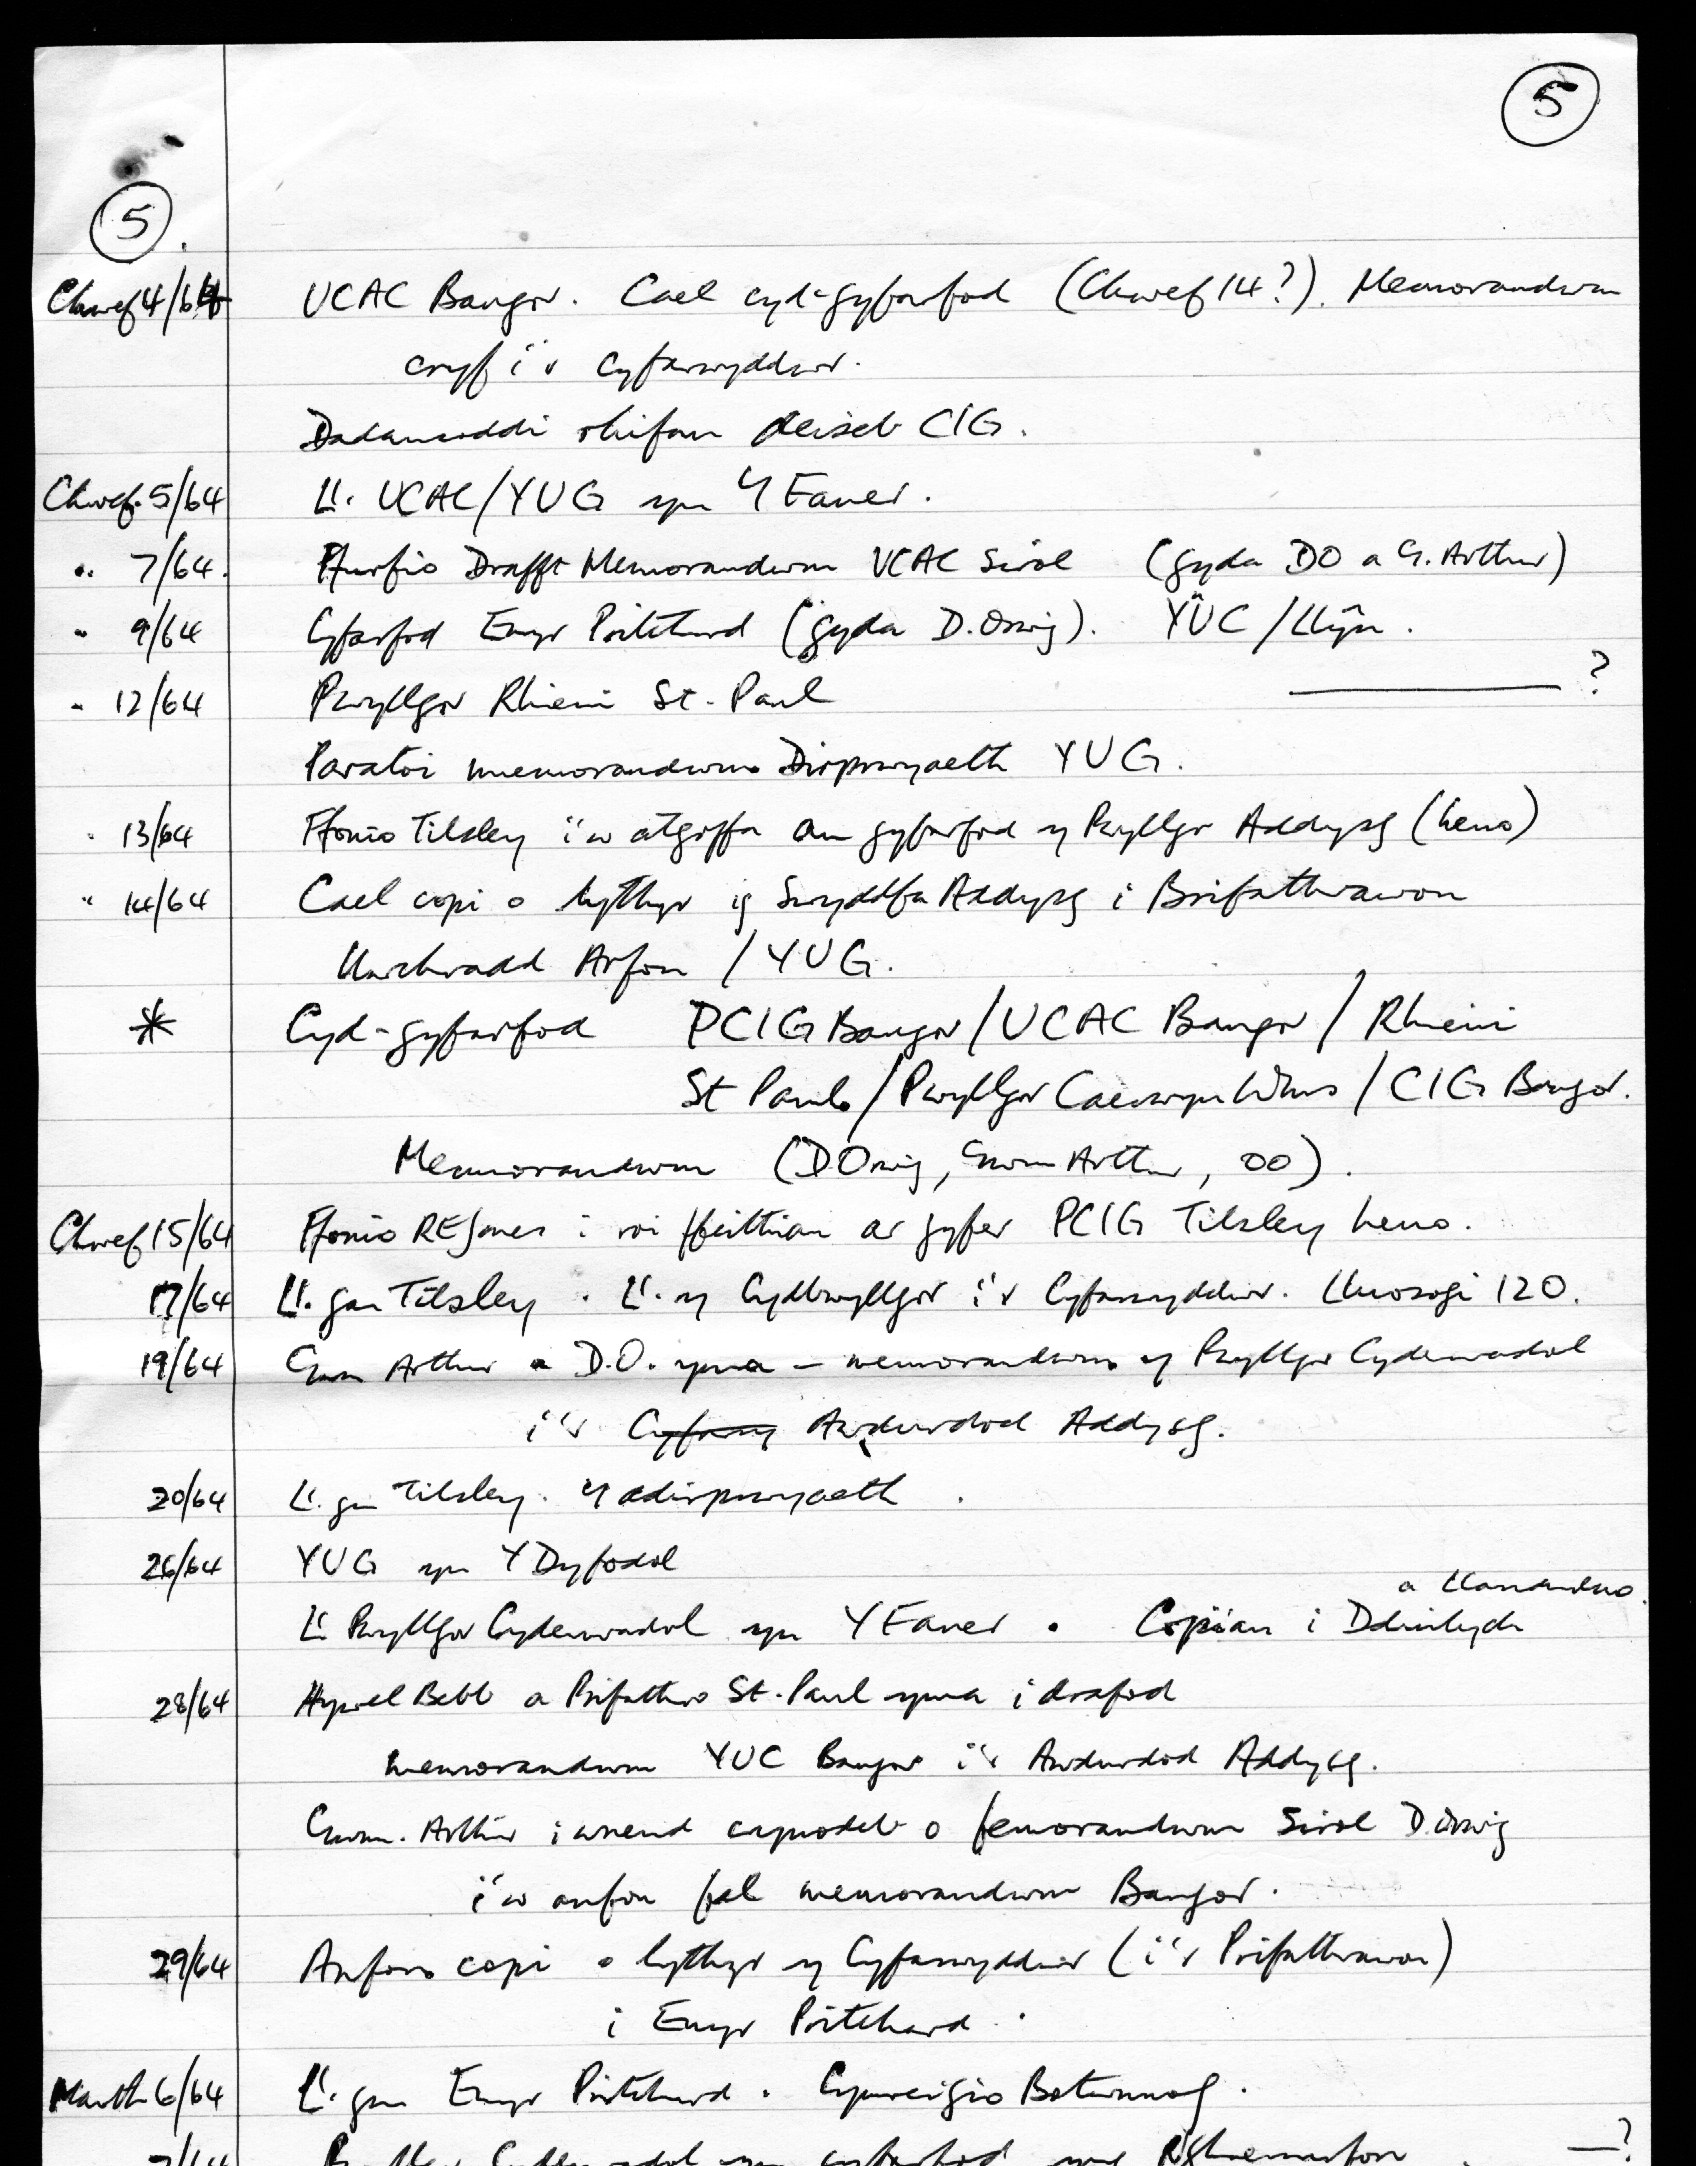 5
5.
Chwef 4/64 UCAC Bangor. Cael cyd-gyfarfod (Chwef 14?). Memorandwm
cryf i'r Cyfarwyddwr.
Dadansoddi rhifau deiseb CIG.
Chwef. 5/64 Ll. UCAC/YUG yn Y Faner.
" 7/64. Ffurfio Drafft Memorandwm UCAC Sirol (gyda DO a G. Arthur)
" 9/64 Cyfarfod Emyr Pritchard (gyda D. Orwig). YUC/Llŷn.
" 12/64 Pwyllgor Rhieni St. Paul ?
Paratoi memorandwm Dirprwyaeth YUG.
" 13/64 Ffonio Tilsley i'w atgoffa am gyfarfod y Pwyllgor Addysg (heno)
" 14/64 Cael copi o lythyr y Swyddfa Addysg i Brifathrawon
Uwchradd Arfon / YUG.
* Cyd-gyfarfod PCIG Bangor / UCAC Bangor / Rhieni
St Pauls / Pwyllgor / CIG Bangor.
Memorandwm (D Orwig, Gwm Arthur, OO).
Chwef 15/64 Ffonio RE Jones i roi ffeithiau ar gyfer PCIG Tilsley heno.
17/64 Ll. gan Tilsley. Ll. y Cydbwyllgor i'r Cyfarwyddwr. Lluosogi 120.
19/64 Gwm Arthur a D.O. yma – memorandwm y Pwyllgor Cydenwadol
i'r Cyfarwy Awdurdod Addysg.
20/64 Ll. gan Tilsley. Y ddirprwyaeth.
26/64 YUG yn Y Dyfodol
a Llandudno.
Ll Pwyllgor Cydenwadol yn Y Faner. Copïau i Ddinbych
28/64 Hywel Bebb a Prifathro St. Paul yma i drafod
memorandwm YUC Bangor i'r Awdurdod Addysg.
Gwm. Arthur i wneud crynodeb o femorandwm Sirol D. Orwig
i'w anfon fel memorandwm Bangor.
29/64 Anfon copi o lythyr y Cyfarwyddwr (i'r Prifathrawon)
i Emyr Pritchard.
Mawrth 6/64 Ll. gan Emyr Pritchard. Cymreigio Botwnnog.
7/64 Pwyllgor Cydenwadol yn cyfarfod yng Nghaernarfon. ?